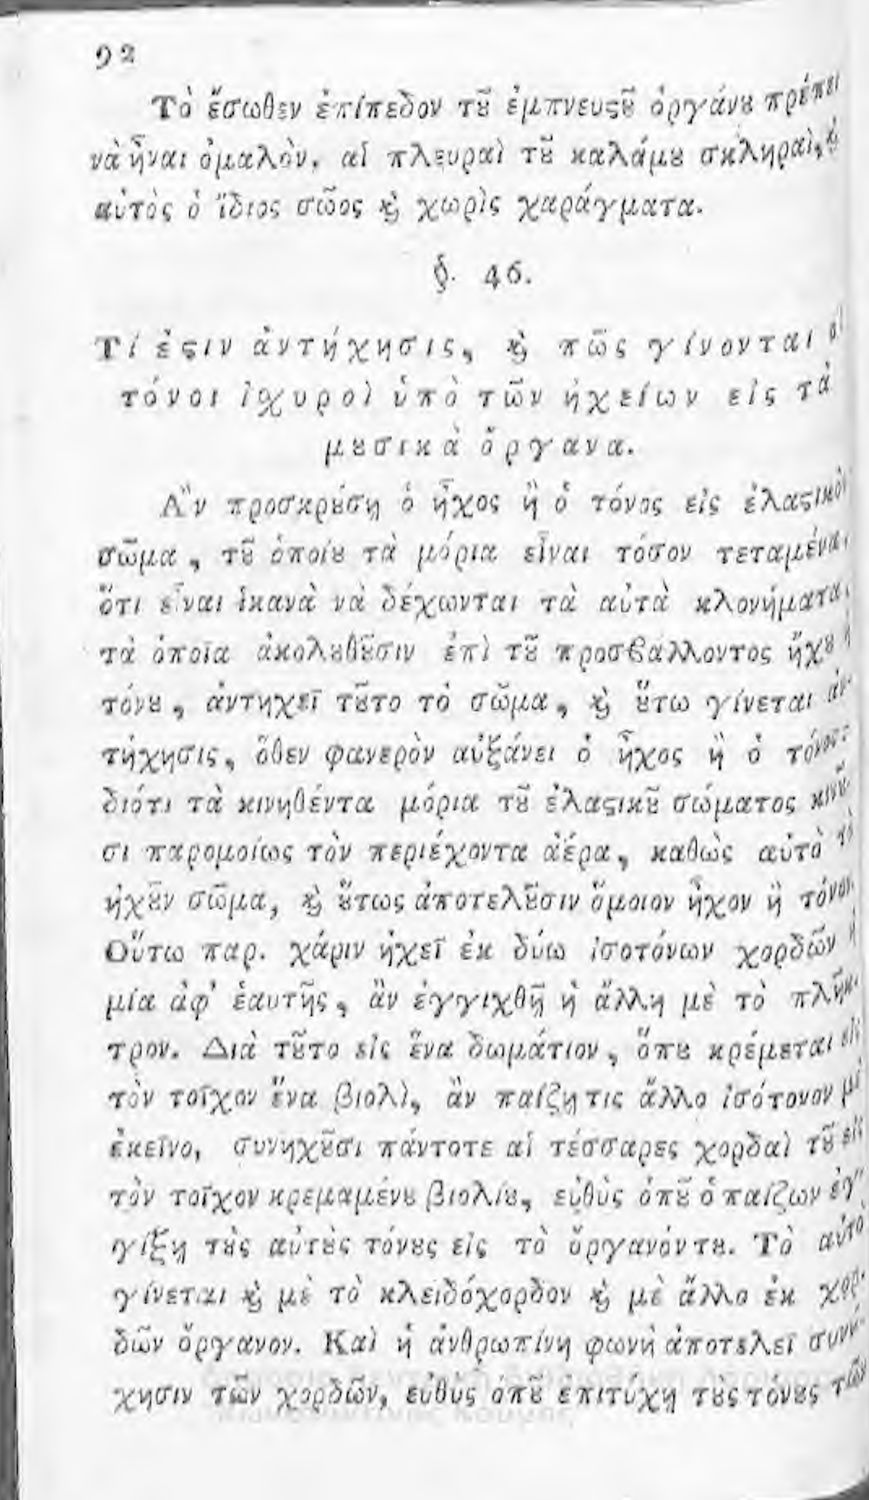 92
Τὸ ἔσωθεν ἐπίπεδον τȣ͂ ἐμπνευϛȣ͂ ὀργάνȣ πρέπει
νὰ ἦναι ὁμαλὸν, αἱ πλευραὶ τȣ͂ καλάμȣ σκληραὶ, ϗ̀
αὐτὸς ὁ ἴδιος σῶος ϗ̀ χωρὶς χαράγματα.
§. 46.
Τί ἐϛιν ἀντήχησις, ϗ̀ πῶς γίνονται οἱ
τόνοι ἰχυροὶ ὑπὸ τῶν ἠχείων εἰς τὰ
μȣσικὰ ὄργανα.
Ἂν προσκρȣ́σῃ ὁ ἦχος ἢ ὁ τόνος εἰς ἐλαϛικὸν
σῶμα, τȣ͂ ὁποίȣ τὰ μόρια εἶναι τόσον τεταμένα,
ὅτι εἶναι ἱκανὰ νὰ δέχωνται τὰ αὐτὰ κλονήματα,
τὰ ὁποῖα ἀκολȣθȣ͂σιν ἐπὶ τȣ͂ προσβάλλοντος ἤχȣ ἢ
τόνȣ, ἀντηχεῖ τȣ͂το τὸ σῶμα, ϗ̀ ȣ̔́τω γίνεται ἀν-
τήχησις, ὅθεν φανερὸν αὐξάνει ὁ ἦχος ἢ ὁ τόνος·
διότι τὰ κινηθέντα μόρια τȣ͂ ἐλαϛικȣ͂ σώματος κινȣ͂-
σι παρομοίως τὸν περιέχοντα ἀέρα, καθὼς αὐτὸ τὸ
ἠχȣ͂ν σῶμα, ϗ̀ ȣ̔́τως ἀποτελȣ͂σιν ὅμοιον ἦχον ἢ τόνον.
Οὕτω παρ. χάριν ἠχεῖ ἐκ δύω ἰσοτόνων χορδῶν ἡ
μία ἀφ' ἑαυτῆς, ἂν ἐγγιχθῇ ἡ ἄλλη μὲ τὸ πλῆκ-
τρον. Διὰ τȣ͂το εἰς ἕνα δωμάτιον, ὅπȣ κρέμεται εἰς
τὸν τοῖχον ἕνα βιολὶ, ἂν παίζῃ τις ἄλλο ἰσότονον μὲ
ἐκεῖνο, συνηχȣ͂σι πάντοτε αἱ τέσσαρες χορδαὶ τȣ͂ εἰς
τὸν τοῖχον κρεμαμένȣ βιολίȣ, εὐθὺς ὁπȣ͂ ὁ παίζων ἐγ-
γίξῃ τȣ̀ς αὐτȣ̀ς τόνȣς εἰς τὸ ὄργανόν τȣ. Τὸ αὐτὸ
γίνεται ϗ̀ μὲ τὸ κλειδόχορδον ϗ̀ μὲ ἄλλο ἐκ χορ-
δῶν ὄργανον. Καὶ ἡ ἀνθρωπίνη φωνὴ ἀποτελεῖ συνή-
χησιν τῶν χορδῶν, εὐθὺς ὁπȣ͂ ἐπιτύχῃ τȣ̀ς τόνȣς τῶν